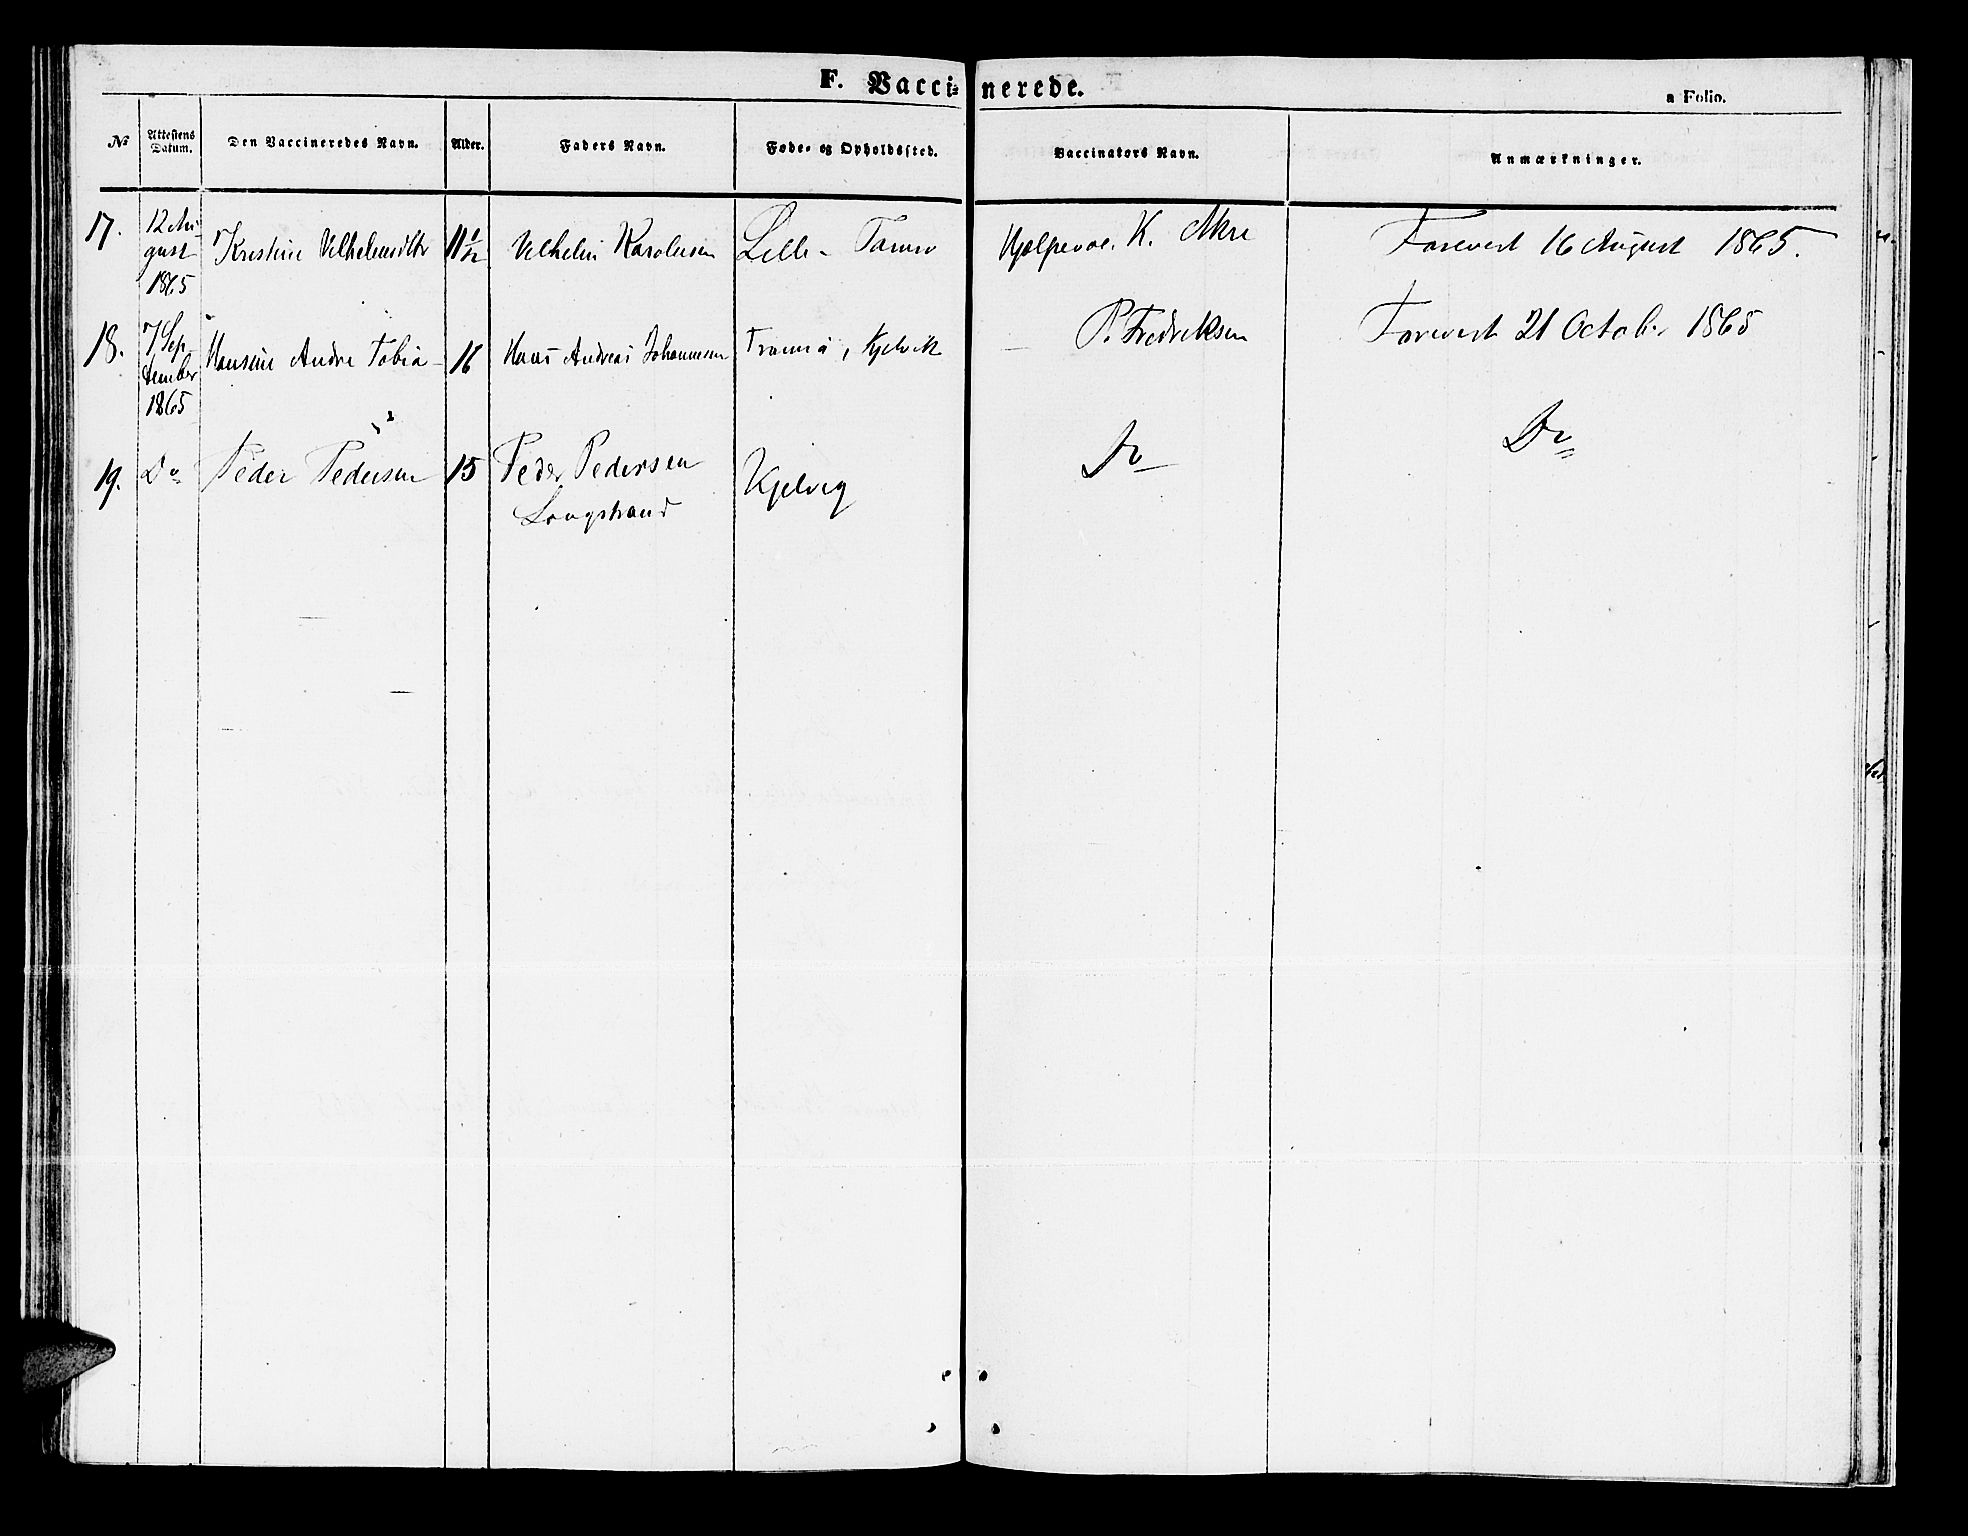 F. Vaccinerede.
a Folio.
№ Attestens Datum. Den Vaccineredes Navn. Alder. Faders Navn. Føde- og Opholdssted. Vaccinators Navn. Anmærkninger.
17. 12 Au- Kristine 11 1/2 Vilhelm Karolusen Lille- Hjælpevac. K. Akre 16 August 1865.
gust
1865
18. 7 Sep Hansine Andre Tobia- 16 Hans Andreas Johannesen Tromsø, Kjelvik P. Fredriksen 21 October 1865
tember
1865
19. Do Peder Pedersen 15 Peder Pedersen Kjelvig Do Do